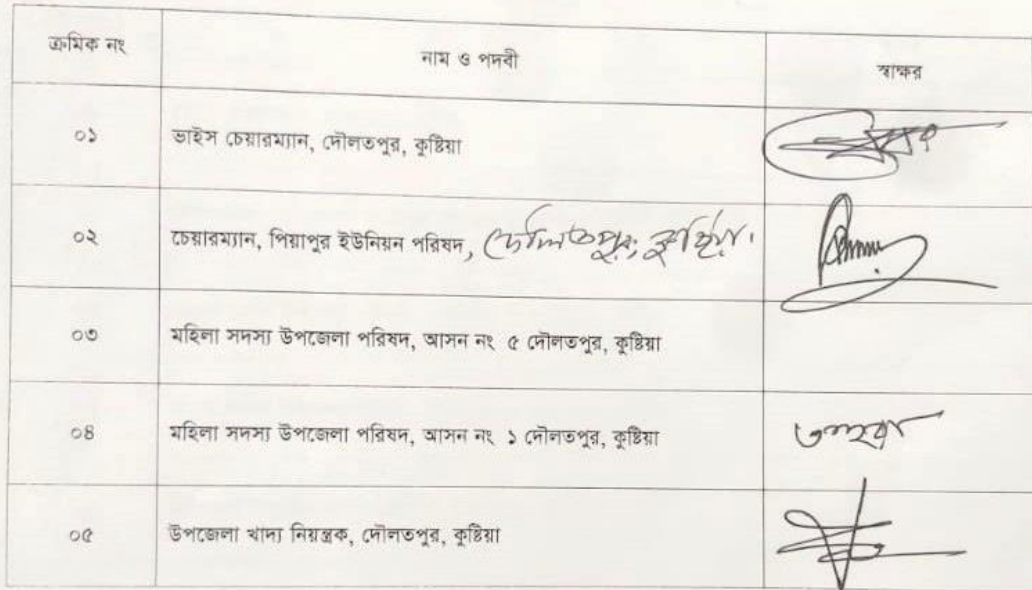 ক্রমিক নং নাম ও পদবী স্বাক্ষর
০১ ভাইস চেয়ারম্যান, দৌলতপুর, কুষ্টিয়া
০২ চেয়ারম্যান, পিয়াপুর ইউনিয়ন পরিষদ, দৌলতপুর, কুষ্টিয়া।
০৩ মহিলা সদস্য উপজেলা পরিষদ, আসন নং ৫ দৌলতপুর, কুষ্টিয়া
০৪ মহিলা সদস্য উপজেলা পরিষদ, আসন নং ১ দৌলতপুর, কুষ্টিয়া
০৫ উপজেলা খাদ্য নিয়ন্ত্রক, দৌলতপুর, কুষ্টিয়া